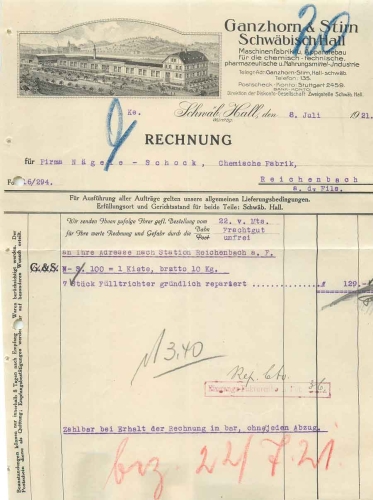 Ganzhorn & Stirn
Schwäbisch Hall
Maschinenfabrik u. Apparatebau
für die chemisch-technische,
pharmazeutische u. Nahrungsmittel-Industrie
Telegr. Adr: Ganzhorn-Stirn, Hall-schwäb.
Telefon 135.
Postscheck-Konto Stuttgart 2459.
Direktion der Diskonto-Gesellschaft Zweigstelle Schwäb. Hall.
20
9
Ke.
Schwäb. Hall, den 8. Juli 1921.
RECHNUNG
für Firma Nägele-Schock, Chemische Fabrik,
Reichenbach
a. d. Fils.
Fo 16/294.
Für Ausführung aller Aufträge gelten unsere allgemeinen Lieferungsbedingungen.
Erfüllungsort und Gerichtsstand für beide Teile: Schwäb. Hall.
Wir senden Ihnen zufolge Ihrer gefl. Bestellung vom 22. v. Mts.
für Ihre werte Rechnung und Gefahr durch die Bahn Frachtgut
Post unfrei
an ihre Adresse nach Station Reichenbach a. F.
G. & S. W- S. 100 = 1 Kiste, bratto 10 Kg.
7 Stück Fülltrichter gründlich repariert 129.-
13.40
Rep. Cto.
Zahlbar bei Erhalt der Rechnung in bar, ohne jeden Abzug.
bez 22/7.21